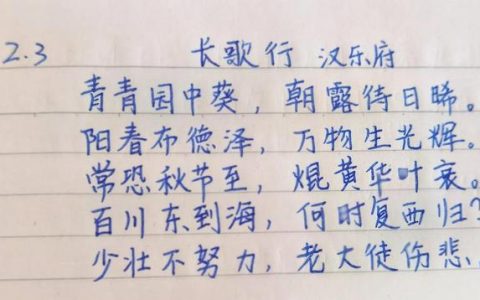 2.3 长歌行 汉乐府
青青园中葵，朝露待日晞。
阳春布德泽，万物生光辉。
常恐秋节至，焜黄华叶衰。
百川东到海，何时复西归？
少壮不努力，老大徒伤悲.